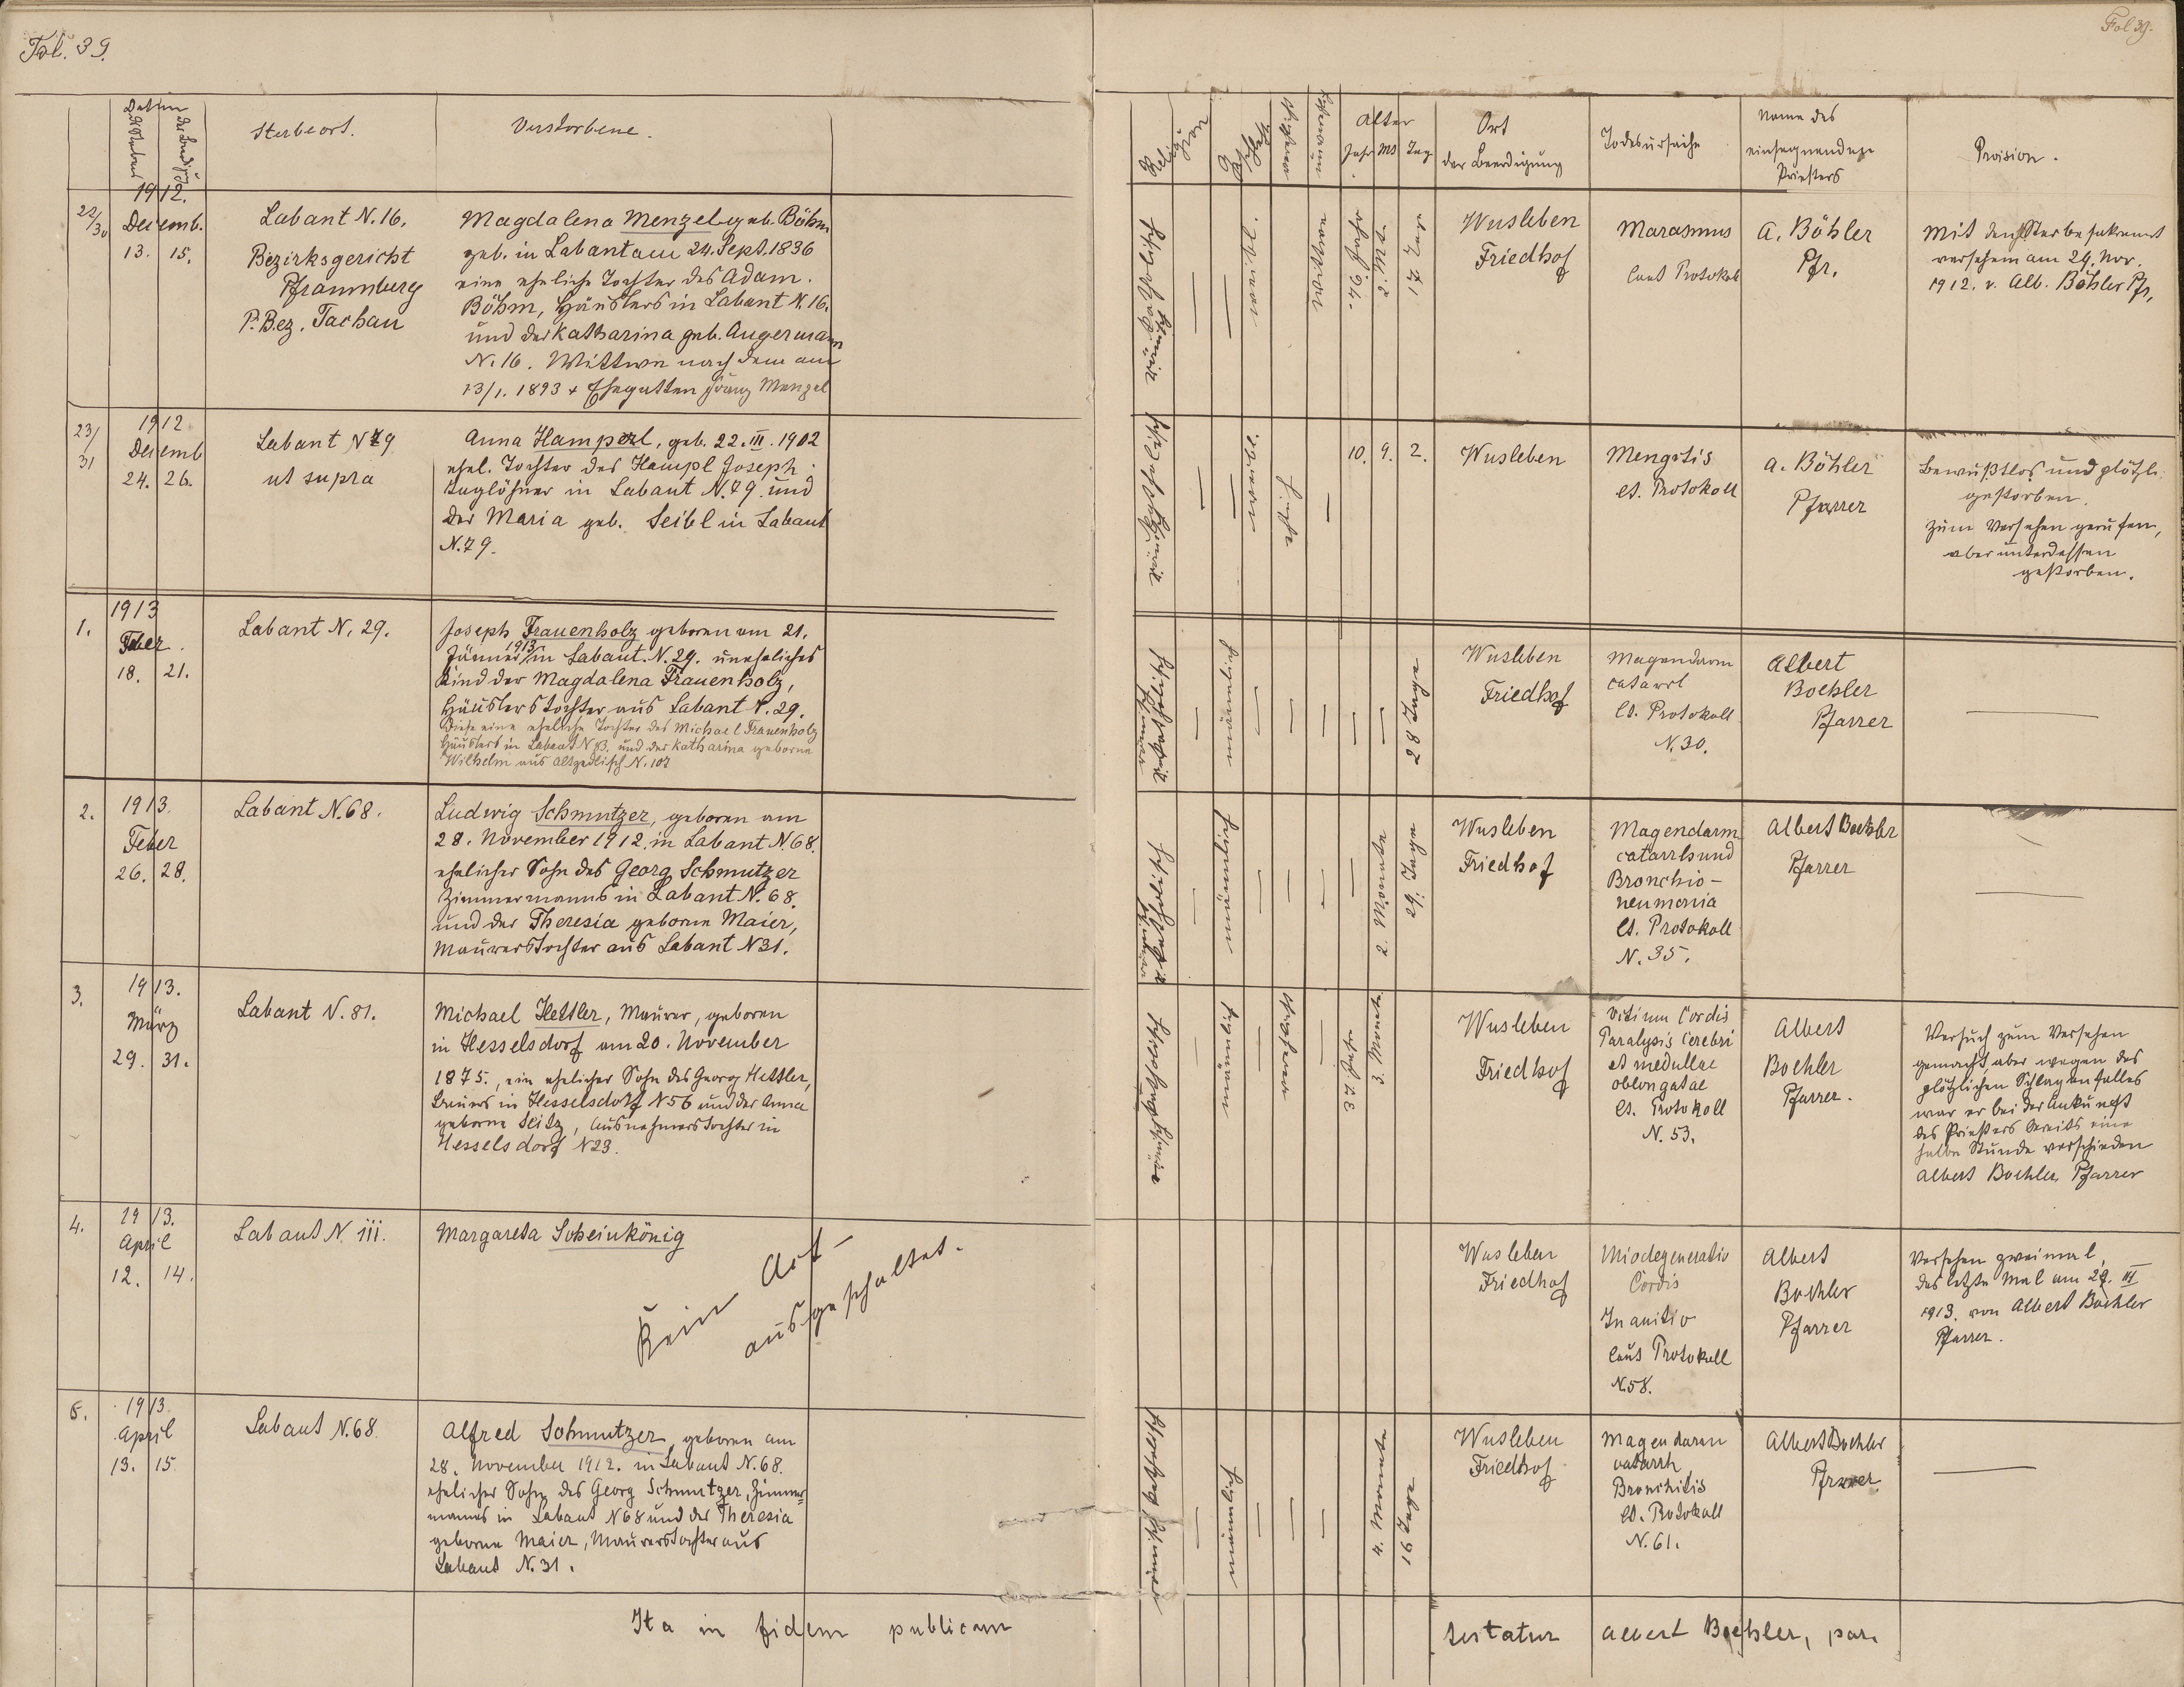 Fol. 39.
Fol 39.
Datum
des Sterbens
der Beerdigung
Sterbeort.
Verstorbene.
Religion
Geschlecht
Alter
Jahr Mt Tag
Ort
der Beerdigung
Todesursache
Name des
einsegnenden
Priesters
Provision.
22/30
1912.
Decemb.
13. 15.
Labant N. 16.
Bezirksgericht
Pfraumberg
P. Bez. Tachau
Magdalena Menzel geb. Böhm
geb. in Labant am 24. Sept. 1836
eine eheliche Tochter des Adam
Böhm, Häuslers in Labant N. 16.
und der Katharina geb. Angermann
N. 16. Wittwe nach dem am
13/1. 1893 + Ehegatten Franz Menzel
römisch katholisch
weibl.
verwitwet
76. Jahr
2. Mt.
17 Tage
Wusleben
Friedhof
Marasmus
laut Protokoll
A. Böhler
Pfr.
Mit den Sterbesakrament
versehen am 29. Nov.
1912. v. Alb. Böhler Pfr.
23/31
1912
Decemb
24. 26.
Labant N 79
ut supra
Anna Hamperl, geb. 22. III. 1902
ehel. Tochter des Hampl Joseph
Taglöhner in Labant N. 79. und
der Maria geb. Seibl in Labant
N. 79.
römisch katholisch
10. 9. 2.
Wusleben
Mengitis
lt. Protokoll
A. Böhler
Pfarrer
Bewußtlos und plötzl.
gestorben.
Zum Versehen gerufen,
aber unterdessen
gestorben.
1.
1913
Feber.
18. 21.
Labant N. 29.
Joseph Frauenholz geboren am 21.
Jänner 1913 in Labant. N. 29. uneheliches
Kind der Magdalena Frauenholz,
Häuslerstochter aus Labant N. 29.
Diese eine eheliche Tochter des Michael Frauenholz
Häuslers in Labant N 83. und der Katharina geborne
Wilhelm aus Altzedlisch N. 107
römisch katholisch
männlich
28 Tage
Wusleben
Friedhof
Magendarm
catarrl
lt. Protokoll
N. 30.
Albert
Boehler
Pfarrer
2.
1913.
Feber
26. 28.
Labant N. 68.
Ludwig Schmutzer, geboren am
28. November 1912. in Labant N. 68.
ehelicher Sohn des Georg Schmutzer
Zimmermanns in Labant N. 68.
und der Theresia geborne Maier,
Maurerstochter aus Labant N 31.
römisch katholisch
männlich
2. Monate
29. Tage
Wusleben
Friedhof
Magendarm
catarrh und
Bronchio-
neumonia
lt. Protokoll
N. 35.
Albert Boehler
Pfarrer
3.
1913.
März
29. 31.
Labant N. 81.
Michael Hettler, Maurer, geboren
in Hesselsdorf am 20. November
1875., ein ehelicher Sohn des Georg Hettler,
Bauers in Hesselsdorf N 56 und der Anna
geborne Seitz, Ausnehmerstochter in
Hesselsdorf N 23.
römisch katholisch
männlich
verheiratet
37 Jahre
3. Monate
Wusleben
Friedhof
Vitium Cordis
Paralysis Cerebri
et medullae
oblongatae
lt. Protokoll
N. 53.
Albert
Boehler
Pfarrer.
Versuch zum Versehen
gemacht, aber wegen des
plötzlichen Schlaganfalles
war er bei der Ankunft
des Priesters bereits eine
halbe Stunde verschieden
Albert Boehler, Pfarrer
4.
1913.
April
12. 14.
Labant N 111.
Margareta Scheinkönig
Kein Akt
ausgeschaltet.
Wusleben
Friedhof
Miodegeneratio
Cordis
Inanitio
laut Protokoll
N. 58.
Albert
Boehler
Pfarrer
Versehen zweimal,
das letzte Mal am 29. III
1913. von Albert Boehler
Pfarrer.
5.
1913
April
13. 15.
Labant N. 68.
Alfred Schmutzer, geboren am
28. November 1912. in Labant N. 68.
ehelicher Sohn des Georg Schmutzer, Zimmer-
manns in Labant N 68 und der Theresia
geborne Maier, Maurerstochter aus
Labant N. 31.
römisch katholisch
männlich
4. Monate
16 Tage
Wusleben
Friedhof
Magendarm
catarrh
Bronchitis
lt. Protokoll
N. 61.
Albert Boehler
Pfarrer.
Ita in fidem publicam
testatur Albert Boehler, par.